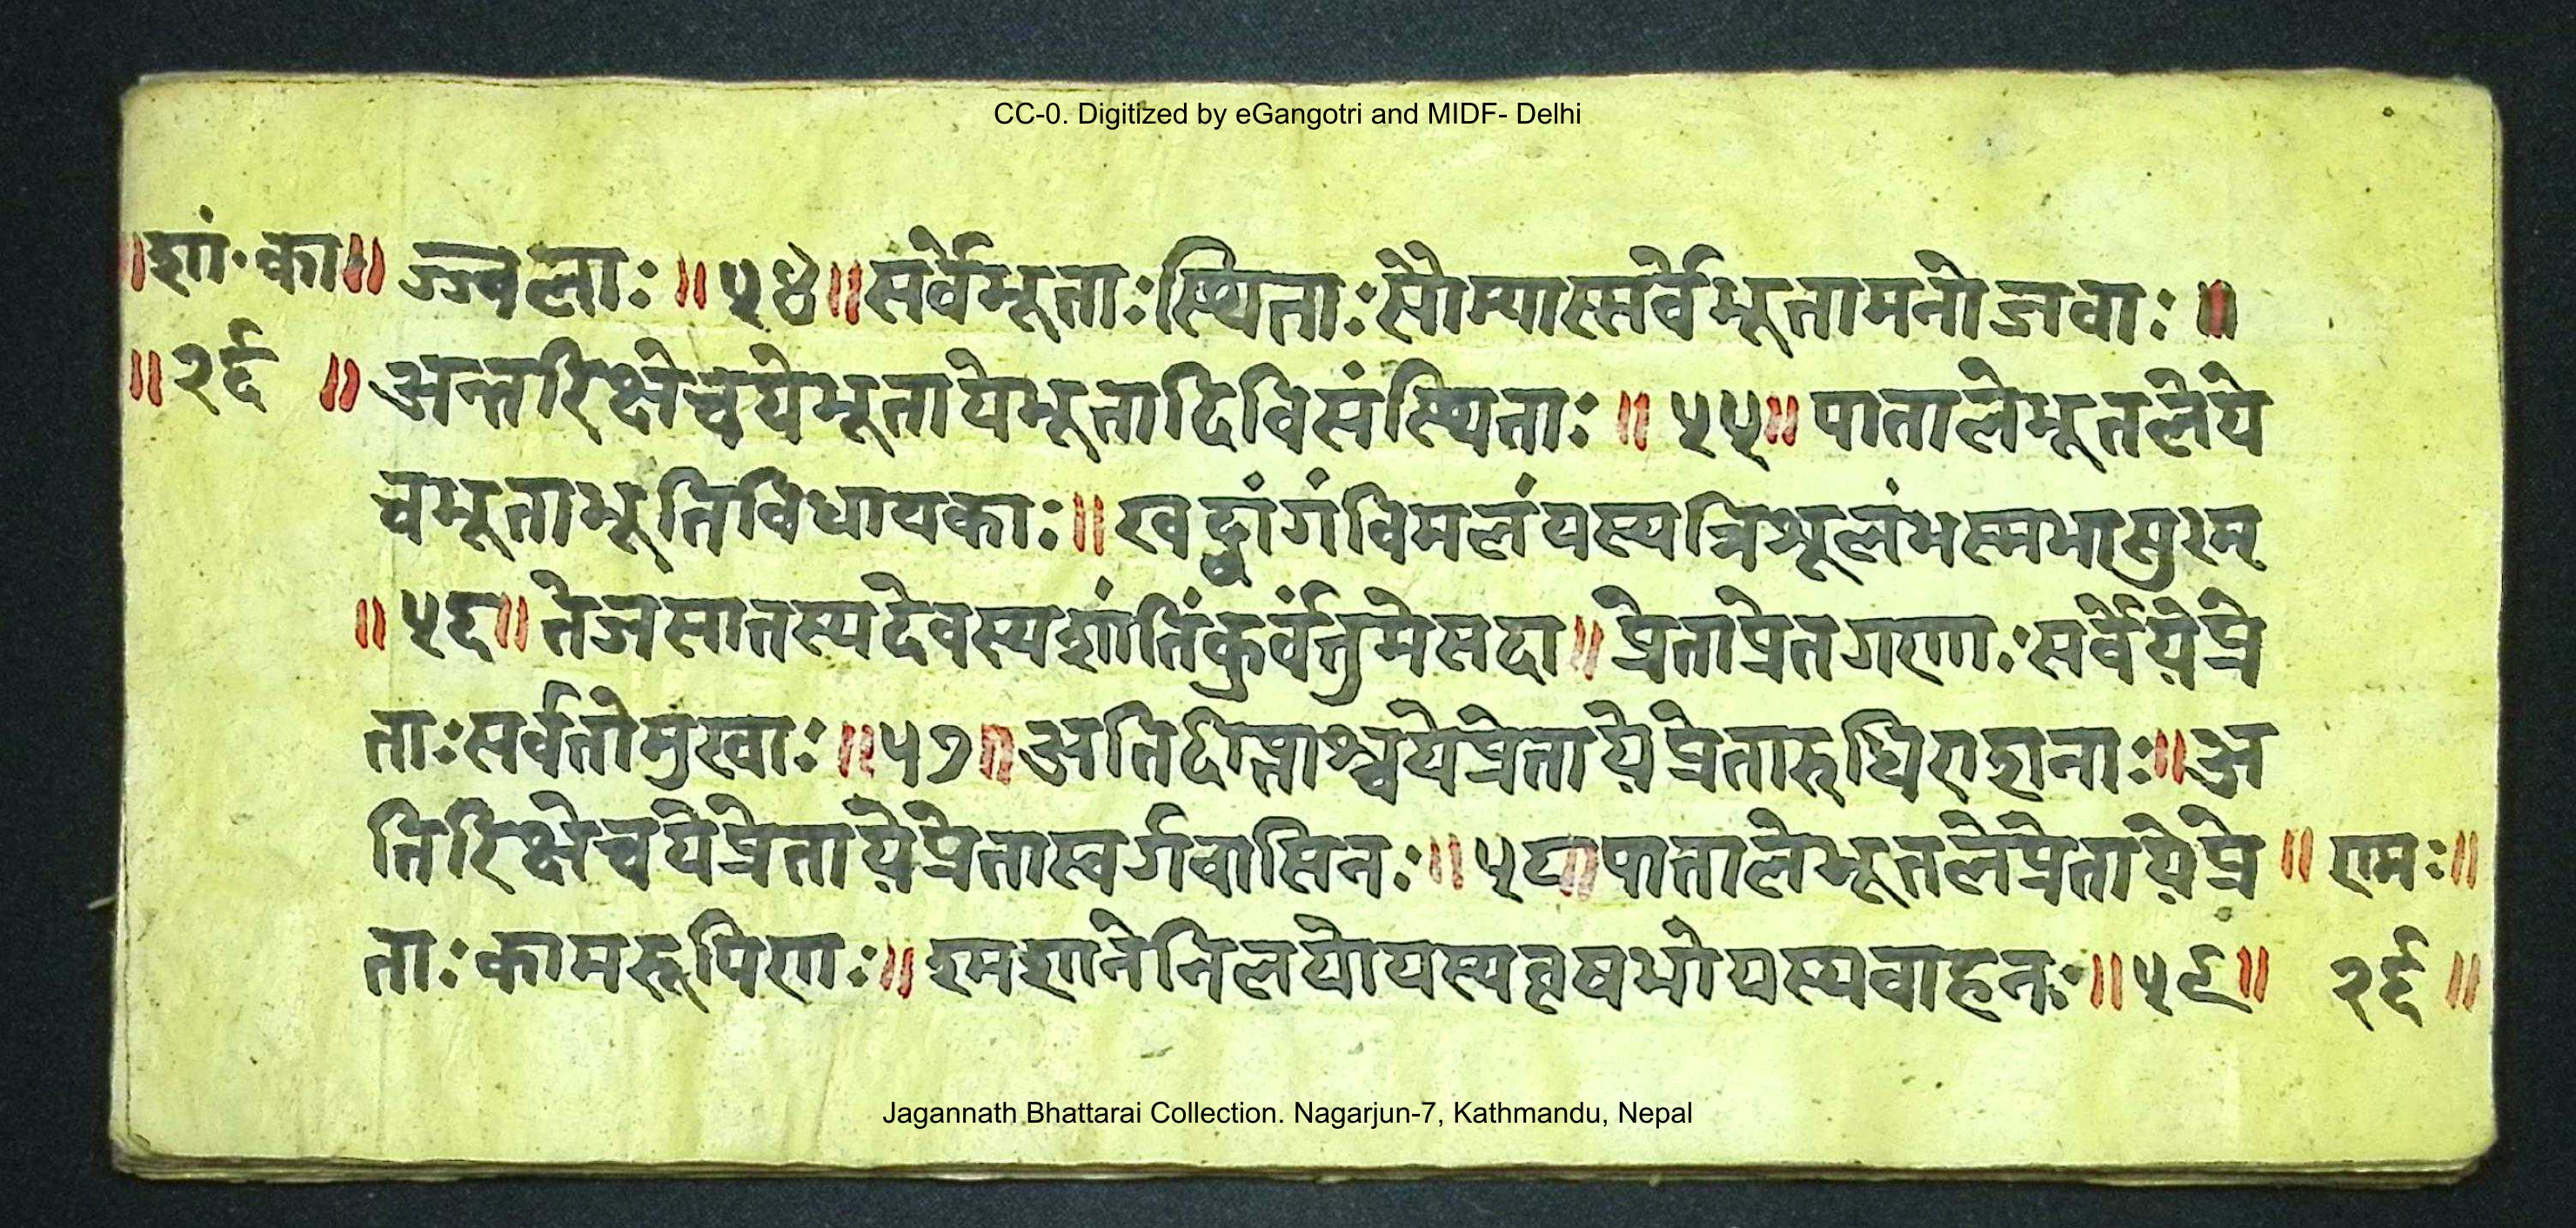 CC-0. Digitized by eGangotri and MIDF- Delhi
॥शां·का॥
॥२६॥
ज्ज्वलाः॥५४॥सर्वेभूताःस्थिताःसौम्यास्सर्वेभूतामनोजवाः॥
अन्तरिक्षेचयेभूतायेभूतादिविसंस्थिताः॥५५॥पातालेभूतलेये
चभूताभूतिविधायकाः॥खट्वांगंविमलंयस्यत्रिशूलंभस्मभासुरम्
॥५६॥तेजसातस्यदेवस्यशांतिंकुर्वंत्तुमेसदा॥प्रेताप्रेतगणाःसर्वेयेप्रे
ताःसर्वतोमुखाः॥५७॥अतिदीप्ताश्चयेप्रेतायेप्रेतारुधिराशनाः॥अ
न्तिरिक्षेचयेप्रेतायेप्रेतास्वर्गवासिनः॥५८॥पातालेभूतलेप्रेतायेप्रे
ताःकामरूपिणः॥श्मशानेनिलयोयस्यवृषभोयस्यवाहनः॥५९॥
॥रामः॥
२६॥
Jagannath Bhattarai Collection. Nagarjun-7, Kathmandu, Nepal